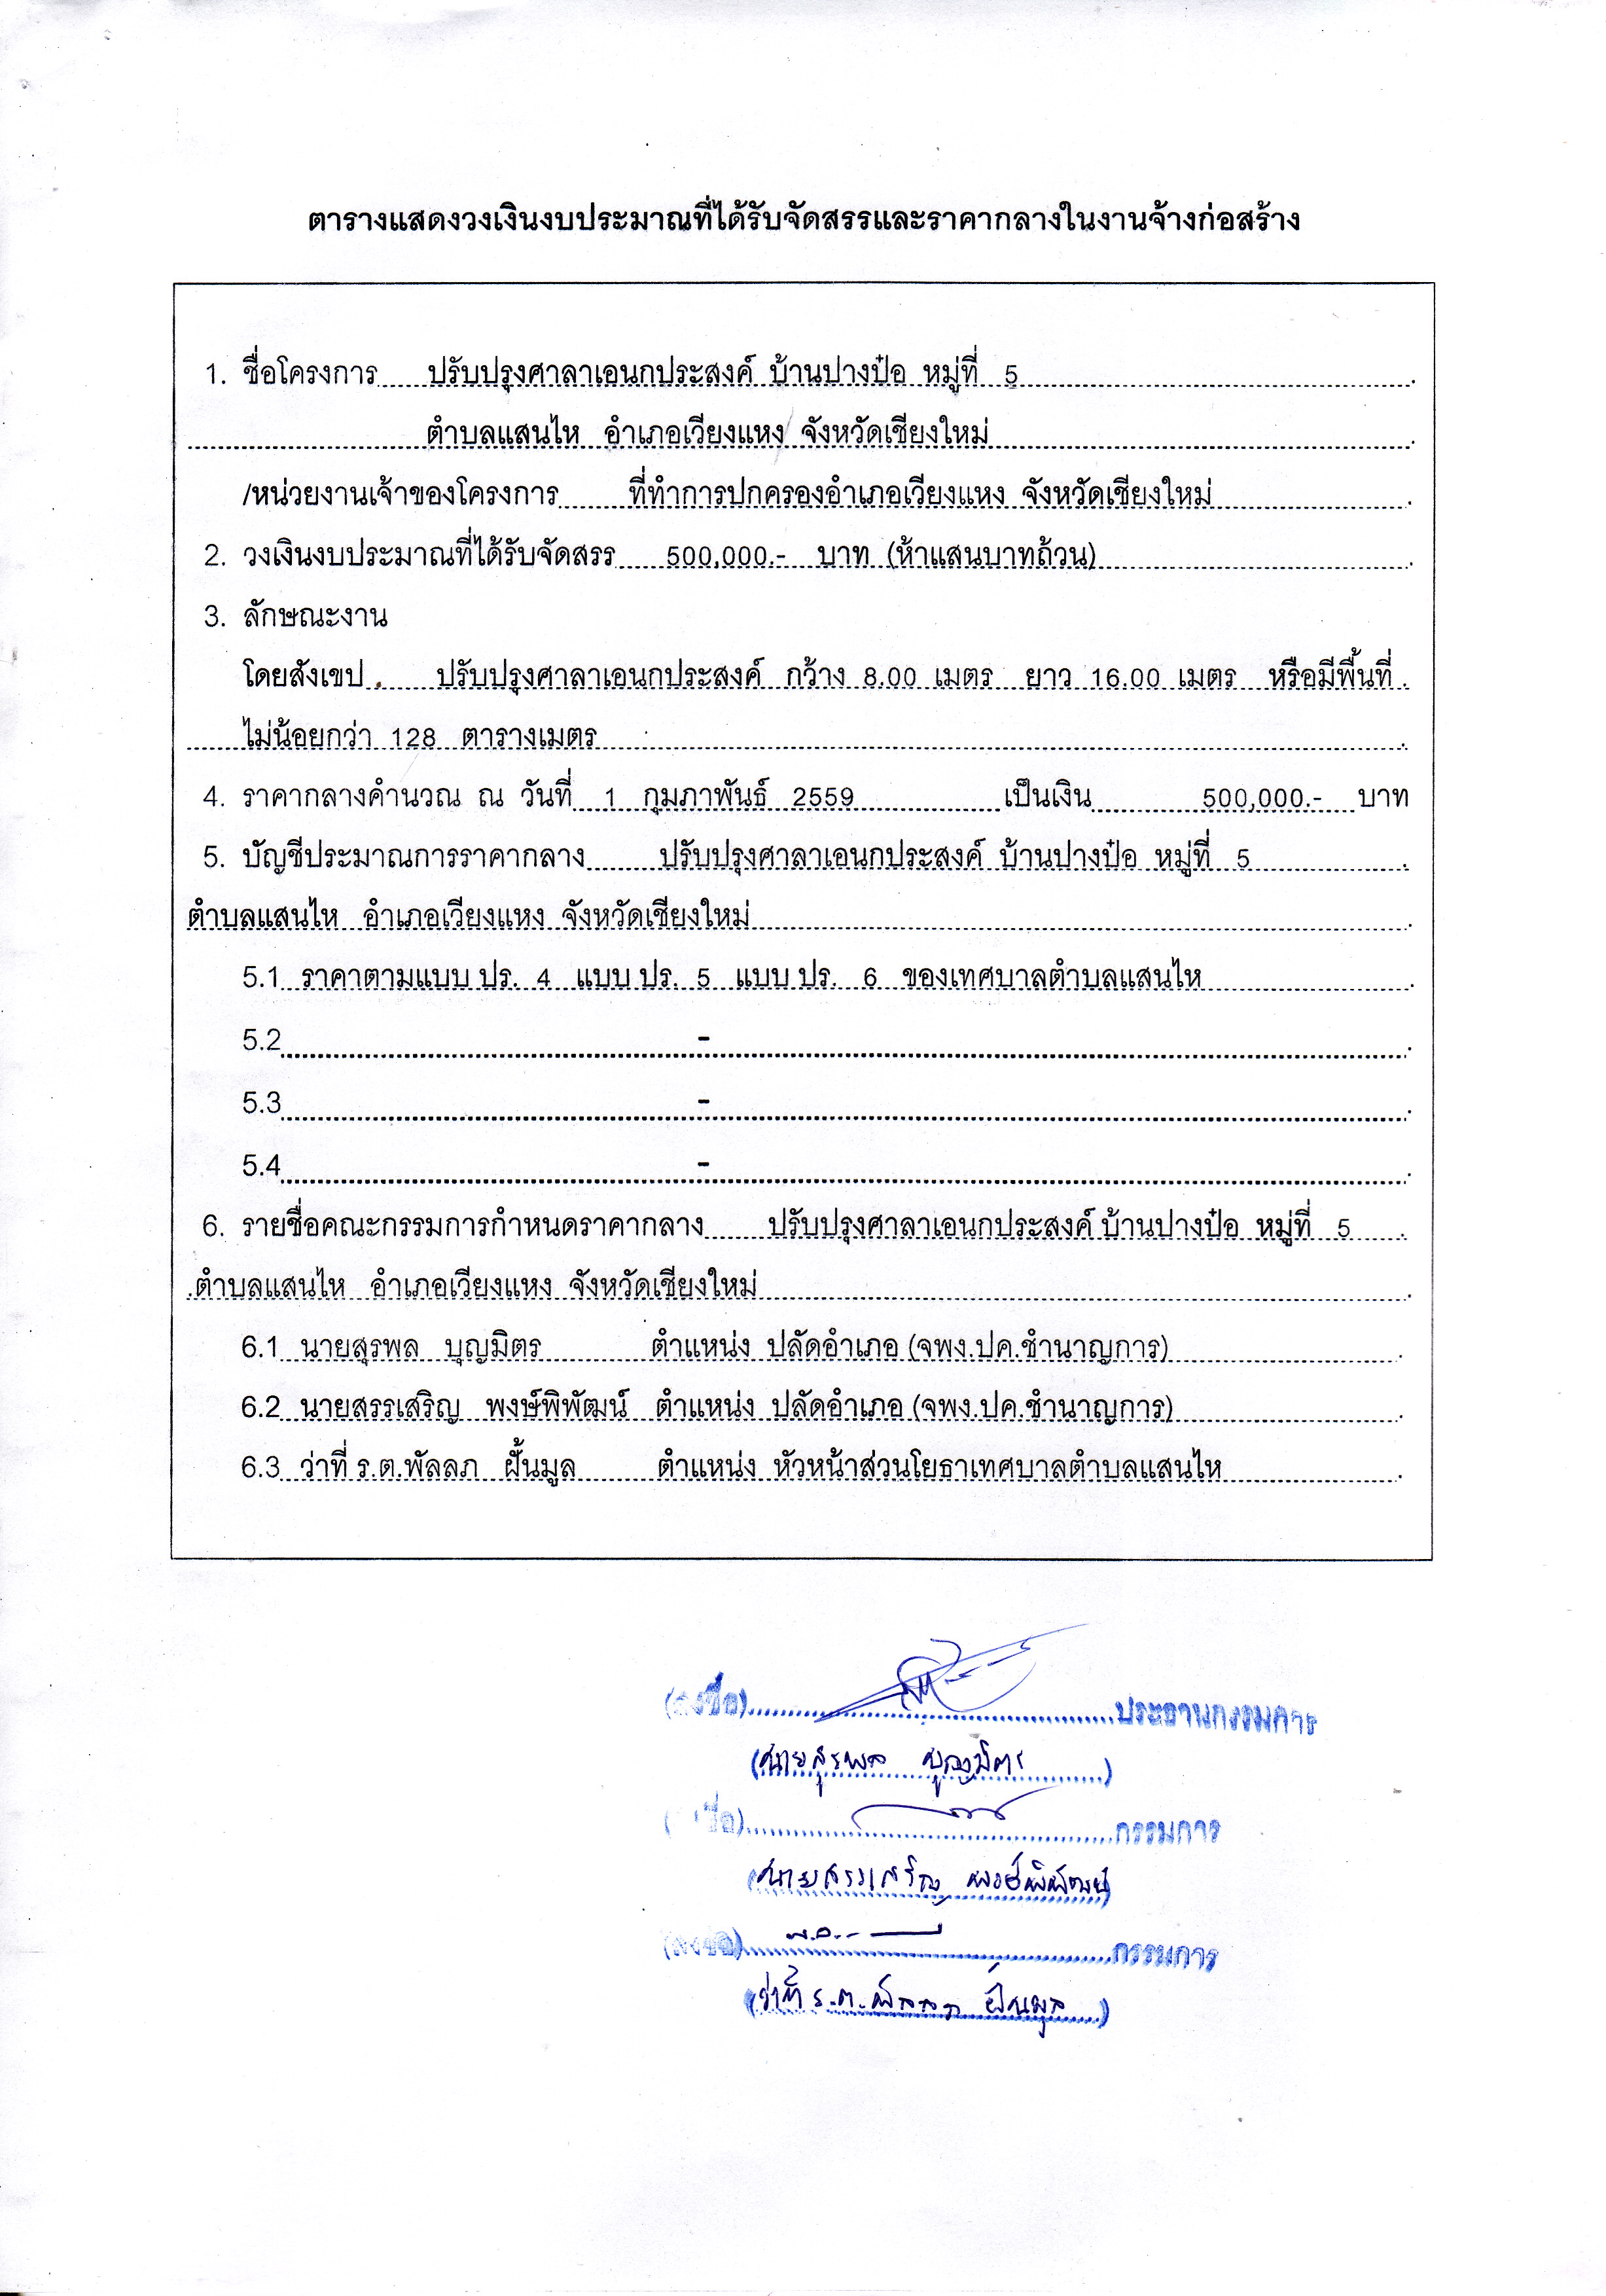 ตารางแสดงวงเงินงบประมาณที่ได้รับจัดสรรและราคากลางในงานจ้างก่อสร้าง
1. ชื่อโครงการ ปรับปรุงศาลาเอนกประสงค์ บ้านปางป๋อ หมู่ที่ 5
ตำบลแสนไห อำเภอเวียงแหง จังหวัดเชียงใหม่
/หน่วยงานเจ้าของโครงการ ที่ทำการปกครองอำเภอเวียงแหง จังหวัดเชียงใหม่
2. วงเงินงบประมาณที่ได้รับจัดสรร 500,000.- บาท (ห้าแสนบาทถ้วน)
3. ลักษณะงาน
โดยสังเขป . ปรับปรุงศาลาเอนกประสงค์ กว้าง 8.00 เมตร ยาว 16.00 เมตร หรือมีพื้นที่
ไม่น้อยกว่า 128 ตารางเมตร
4. ราคากลางคำนวณ ณ วันที่ 1 กุมภาพันธ์ 2559 เป็นเงิน 500,000.- บาท
5. บัญชีประมาณการราคากลาง ปรับปรุงศาลาเอนกประสงค์ บ้านปางป๋อ หมู่ที่ 5
ตำบลแสนไห อำเภอเวียงแหง จังหวัดเชียงใหม่
5.1 ราคาตามแบบ ปร. 4 แบบ ปร. 5 แบบ ปร. 6 ของเทศบาลตำบลแสนไห
5.2 -
5.3 -
5.4 -
6. รายชื่อคณะกรรมการกำหนดราคากลาง ปรับปรุงศาลาเอนกประสงค์ บ้านปางป๋อ หมู่ที่ 5
ตำบลแสนไห อำเภอเวียงแหง จังหวัดเชียงใหม่
6.1 นายสุรพล บุญมิตร ตำแหน่ง ปลัดอำเภอ (จพง.ปค.ชำนาญการ)
6.2 นายสรรเสริญ พงษ์พิพัฒน์ ตำแหน่ง ปลัดอำเภอ (จพง.ปค.ชำนาญการ)
6.3 ว่าที่ ร.ต.พัลลภ ฝั้นมูล ตำแหน่ง หัวหน้าส่วนโยธาเทศบาลตำบลแสนไห
(ลงชื่อ) ประธานกรรมการ
(นายสุรพล บุญมิตร)
(ลงชื่อ) กรรมการ
(นายสรรเสริญ พงษ์พิพัฒน์)
(ลงชื่อ) กรรมการ
(ว่าที่ ร.ต.พัลลภ ฝั้นมูล)